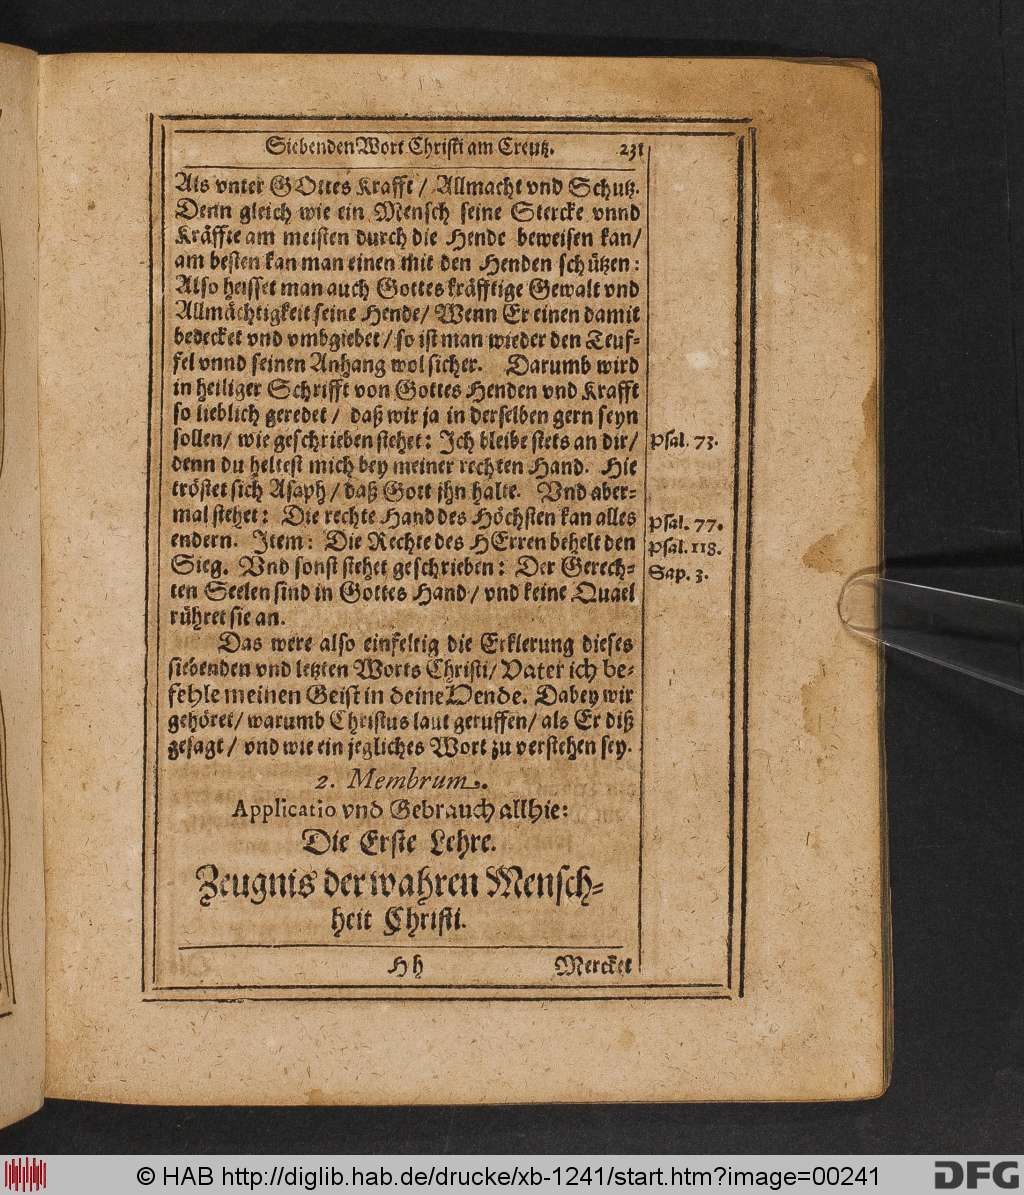 Siebenden Wort Christi am Creutz. 231
Als vnter GOttes Krafft / Allmacht vnd Schutz.
Denn gleich wie ein Mensch seine Stercke vnnd
Kräffte am meisten durch die Hende beweisen kan/
am besten kan man einen mit den Henden schützen:
Also heisset man auch Gottes kräfftige Gewalt vnd
Allmächtigkeit seine Hende/ Wenn Er einen damit
bedecket vnd vmbgiebet / so ist man wieder den Teuf-
fel vnnd seinen Anhang wol sicher. Darumb wird
in heiliger Schrifft von Gottes Henden vnd Krafft
so lieblich geredet / daß wir ja in derselben gern seyn
sollen/ wie geschrieben stehet: Ich bleibe stets an dir/
Psal. 73.
denn du heltest mich bey meiner rechten Hand. Hie
tröstet sich Asaph / daß Gott jhn halte. Vnd aber-
mal stehet: Die rechte Hand des Höchsten kan alles
Psal. 77.
endern. Item: Die Rechte des HErren behelt den
Psal. 118.
Sieg. Vnd sonst stehet geschrieben: Der Gerech-
Sap. 3.
ten Seelen sind in Gottes Hand / vnd keine Quael
rühret sie an.
Das were also einfeltig die Erklerung dieses
siebenden vnd letzten Worts Christi/ Vater ich be-
fehle meinen Geist in deine Hende. Dabey wir
gehöret/ warumb Christus laut geruffen/ als Er diß
gesagt / vnd wie ein jegliches Wort zu verstehen sey.
2. Membrum.
Applicatio vnd Gebrauch allhie:
Die Erste Lehre.
Zeugnis der wahren Mensch-
heit Christi.
Hh Mercket
© HAB http://diglib.hab.de/drucke/xb-1241/start.htm?image=00241
DFG